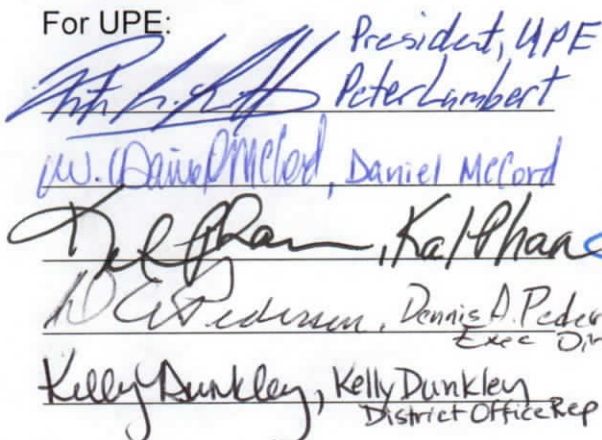 For UPE:
President, UPE
Peter Lambert
W. Daniel McCord, Daniel McCord
Kal Phan, Kal Phan
D A Pedersen, Dennis A. Peder
Exec Dir
Kelly Dunkley, Kelly Dunkley
District Office Rep